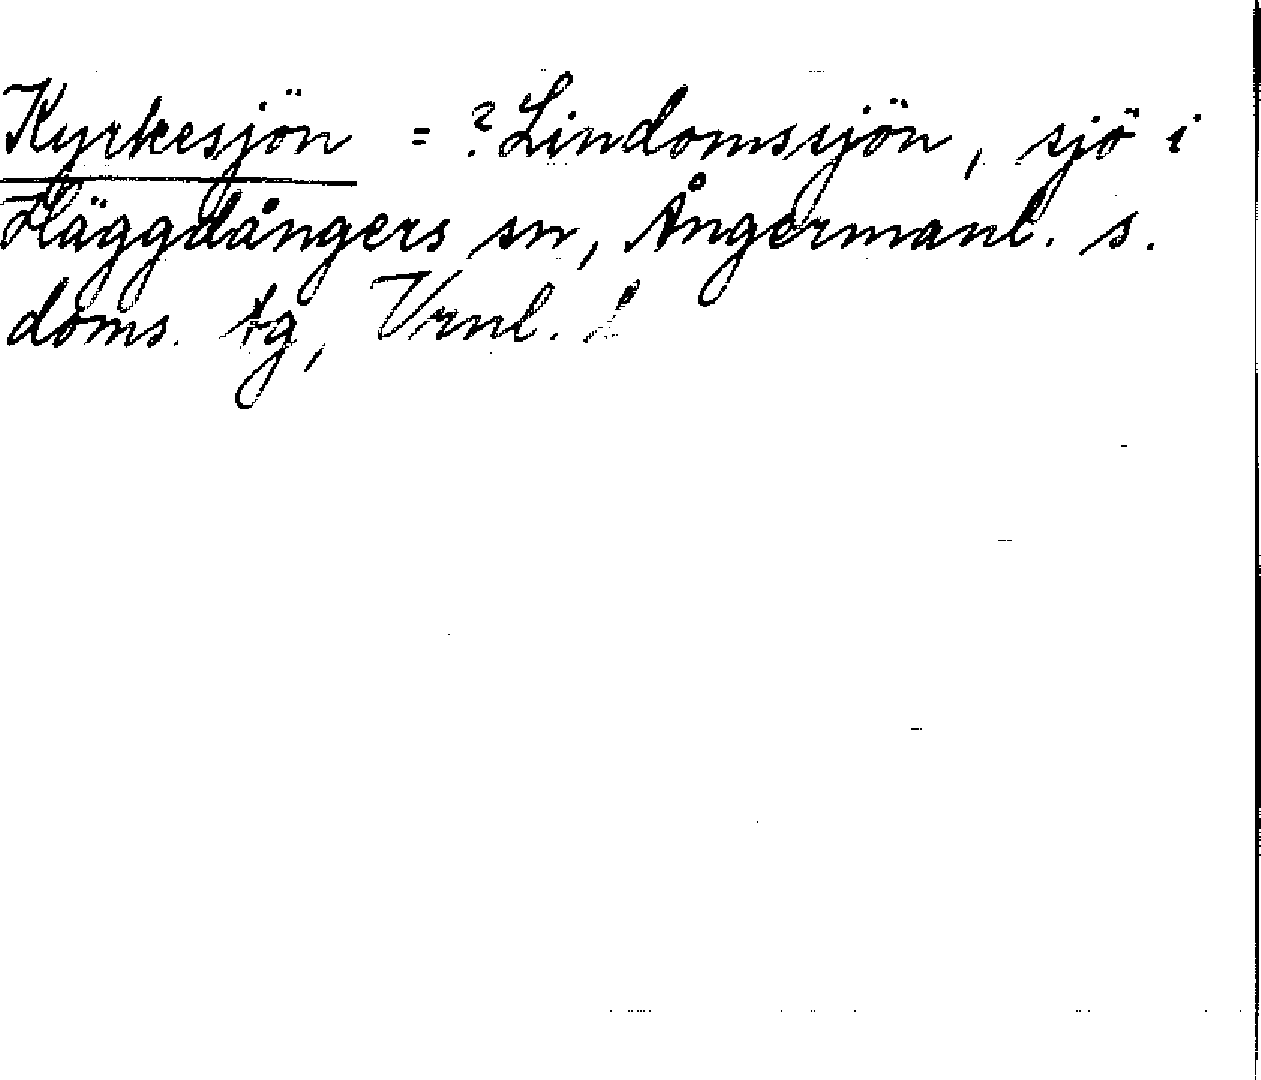 Kyrkesjön = ? Lindomssjön, sjö i
Häggdångers sn, Ångermanl. s.
doms. tg, Vrnl. l